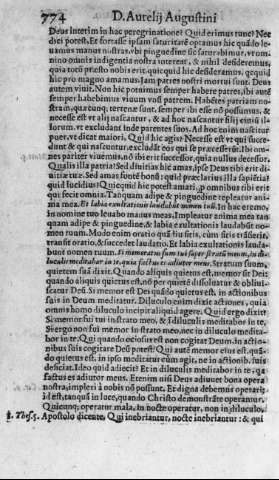 774 D. Aurelij Augustini
Deus interim in hac peregrinatione? Quid erimus tunc? Nec
dici potest. Et forrasse ipsam saturitatē optamus hic quādo le-
uamus manus nostras. ibi pinguedine sic saturabimur, vt om-
nino omnis indigentia nostra intereat, & nihil desideremus,
quia totū præsto nobis erit quicquid hic desideramus, qcquid
hic pro magno amamus. Iam patres nostri mortui sunt. Deus
autem viuit. Non hic potuimus semper habere patres, ibi autē
semper habebimus viuum vnū patrem. Habētes patriam no-
stram. quæcunq; terrenæ sunt, semper ibi esse nō possumus, &
necesse est vt alij nascantur, & ad hoc nascantur filij
lorum. vt excludant inde parentes suos. Ad hoc enim nascitur
puer, vt dicat maiori, Quid hic agis? Necesse est vt qui succe-
dunt & qui nascuntur, excludāt eos qui se præcesserūt. Ibi om-
nes pariter viuemus. nō ibi erit successor, quia nullus decessor.
Qualis illa patria? Sed diuitias hic amas, ipse Deus tibi erit di-
uitiæ tuæ. Sed amas fontē bonū: quid præclarius illa sapiētia?
quid lucidius? Quicquid hic potest amari, p omnibus tibi erit
qui fecit omnia. Tanquam adipe & pinguedine repleatur ani-
ma mea. Et labia exultationis laudabūt nomen tuū. In hac eremo,
in nomine tuo leuabo manus meas. Impleatur anima mea tan-
quam adipe & pinguedine, & labia exultationis laudabūt no-
men tuum. Modo enim oratio quādiu sitis, cùm sitis træsierit,
transit oratio, & succedet laudatio. Et labia exultationis lauda-
bunt nomen tuum. Si memoratus sum tui super stratū meum, in di-
luculis meditabar in te. quia factus es adiutor meus. Stratum suum,
quietem suā dixit. Quando aliquis quietus est, memor sit Dei:
quando aliquis quietus est, nō per quietē dissoluatur & obliui-
scatur Deū. Si memor est Dei quādo quietus est, in actionibus
suis in Deum meditatur. Diluculo enim dixit actiones, quia
omnis homo diluculo incipit aliquid agere. Quid ergo dixit?
Si memor fui tui in strato meo, & in diluculis meditabor in te.
Si ergo non fui memor in strato meo, nec in diluculo medita-
bor in te. Qui quando ociosus est non cogitat Deum, in actio-
nibus suis Deum cogitare potest? Qui autē memor eius est, quā-
do quietus est, in ipso meditatur cùm agit, ne in actionib. suis
deficiat. Ideo quid adiecit? Et in diluculis meditabor in te, qa
factus es adiutor meus. Etenim nisi Deus adiuuet bona opera
nostra, impleri à nobis nō possunt. Et digna debemus operari,
id est, tanquā in luce, quando Christo demonstrāte operamur.
Quicunq; operatur mala, in nocte operatur, non in diluculo,
1. Thes. 5. Apostolo dicente, Qui inebriantur, nocte inebriantur: & qui